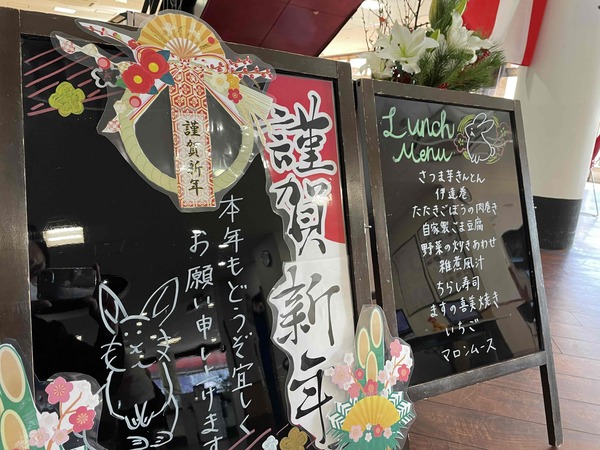 謹賀新年
謹賀新年
本年もどうぞ宜しく
お願い申し上げます
Lunch
Menu
さつま芋きんとん
伊達巻
たたきごぼうの肉巻き
自家製ごま豆腐
野菜の炊きあわせ
雑煮風汁
ちらし寿司
ますの喜美焼き
いちご
マロンムース